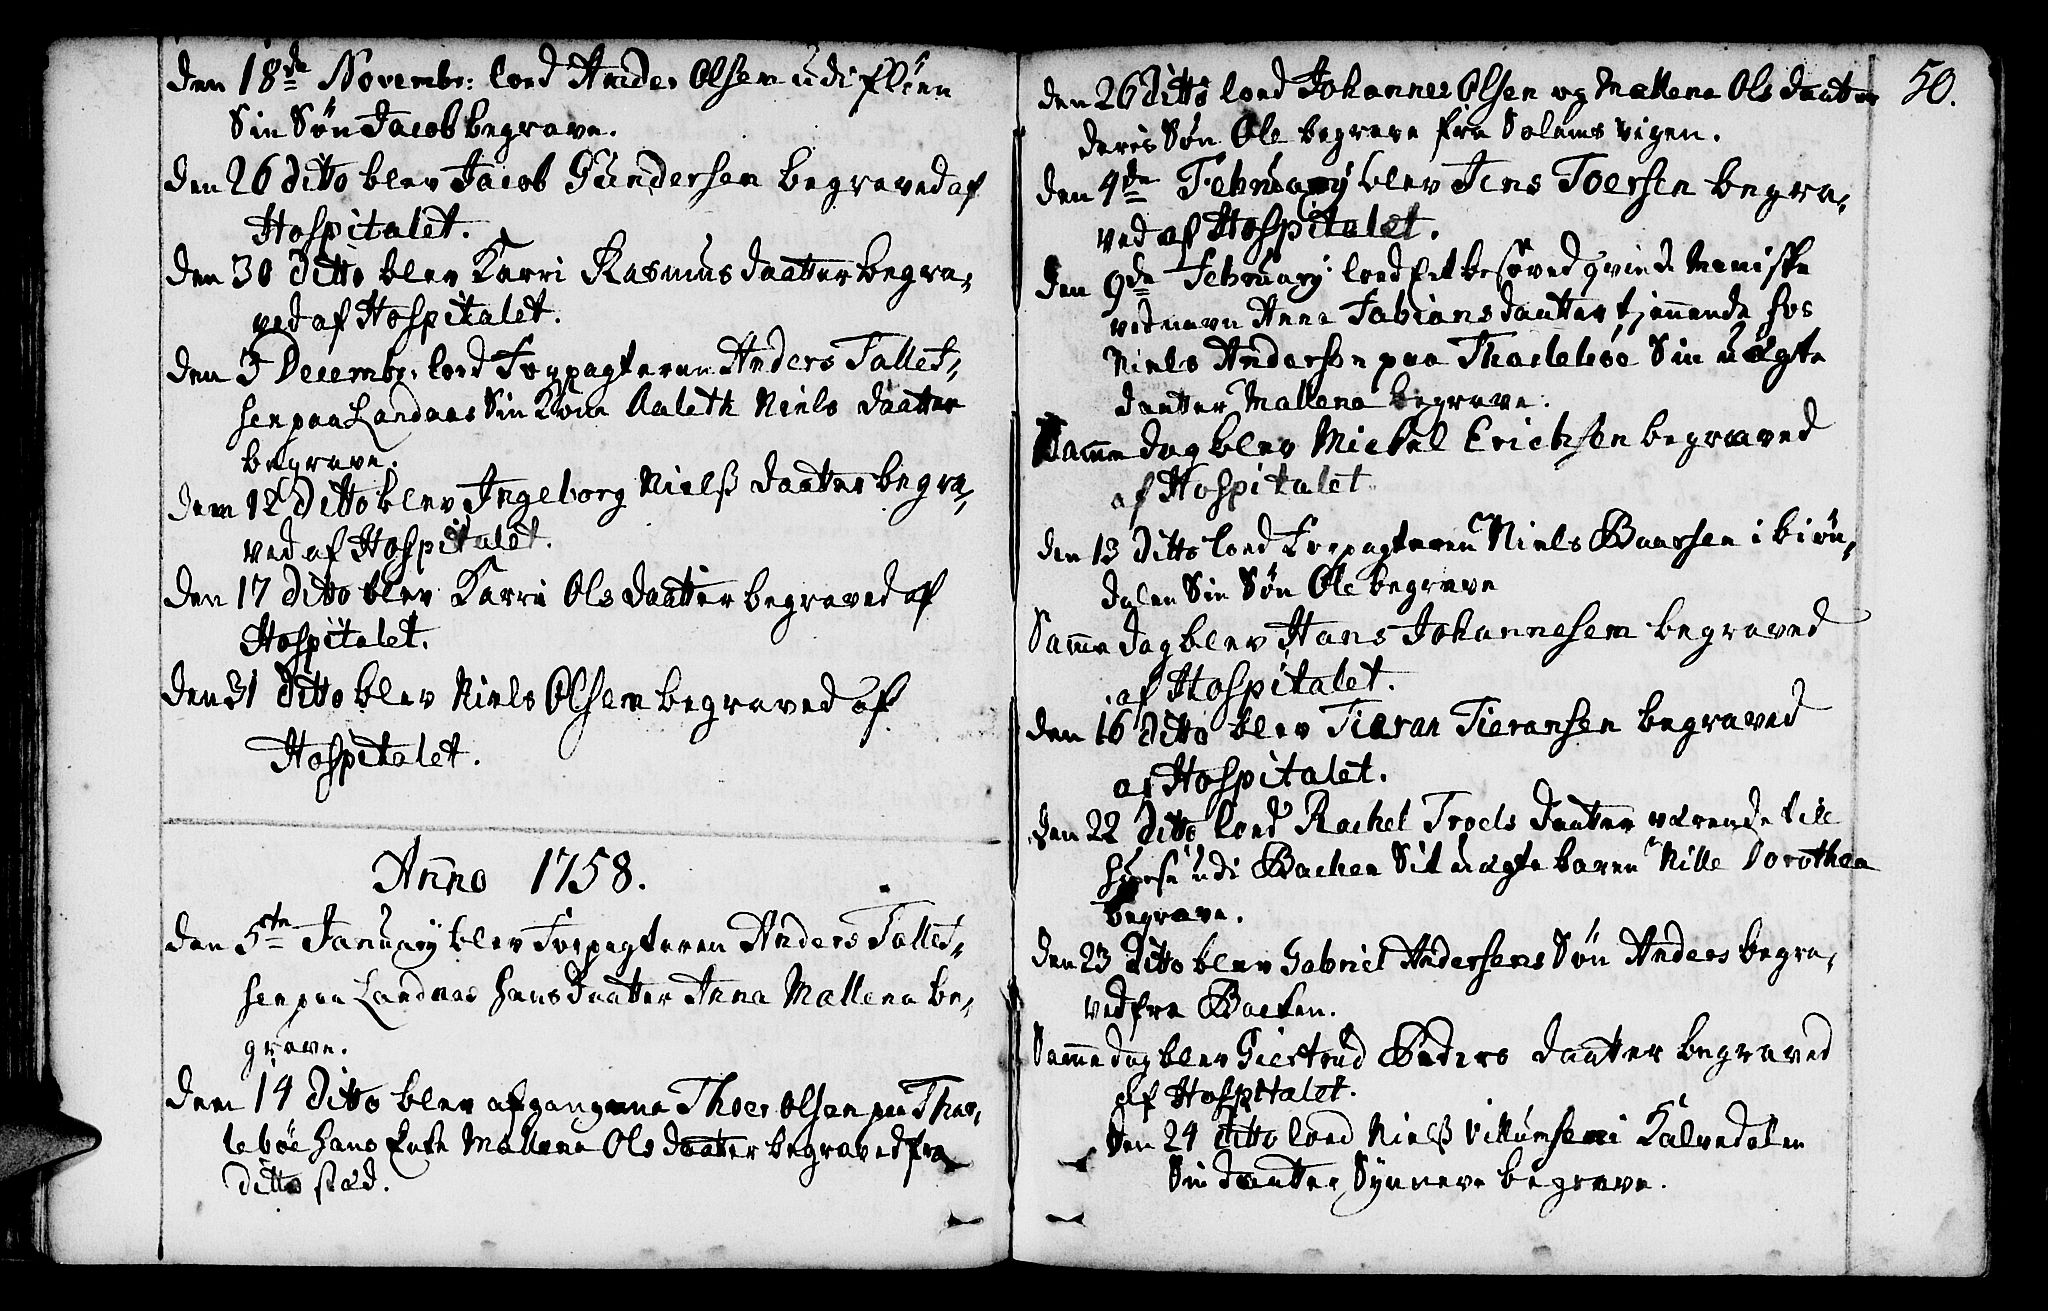 Den 18de Novembr: loed Anders Olsen udi fløen
Sin Søn Jacob begrave.
Den 26 ditto blev Jacob Gundersen begraved af
Hospitalet.
Den 30 Ditto blev Karri Rasmus daatter begra-
ved af Hospitalet.
Den 3 Decembr: loed Forpagteren Anders Tallet-
sen paa Landaas Sin Kone Aaleth Niels daatter
begrave.
Den 12 Ditto blev Ingeborg Nielß daatter begra-
ved af Hospitalet.
Den 17 Ditto blev Karri Ols daatter begraved af
Hospitalet.
Den 31 Ditto blev Niels Olsen begraved af
Hospitalet.
Anno 1758.
Den 5te January blev Forpagteren Anders Tallet-
sen paa Landaas hans daatter Anna Mallena be-
grave.
Den 14 Ditto blev afgangne Thoer Olsen paa Thar-
lebøe hans Enke Mallena Ols daatter begraved fra
ditto stæd.
50.
Den 26 Ditto loed Johannes Olsen og Mallena Ols daatter
deris Søn Ole begrave fra Solems vigen.
Den 4de February blev Jens Toersen begra-
ved af Hospitalet.
Den 9de February: loed Eet besøved qvinde Meniske
ved navn Anna Fabians daatter tjennende hos
Niels Andersen paa Tharlebøe Sin uægte
daatter Mallena begrave.
Samme dag blev Michel Erichsen begraved
af Hospitalet
Den 13 Ditto loed Forpagteren Niels Baarsen i biøn-
dalen Sin Søn Ole begrave
Samme dag blev Hans Johannesen begraved
af Hospitalet.
Den 16 Ditto blev Tieran Tieransen begraved
af Hospitalet.
Den 22 Ditto loed Rachel Troels daatter værende til
huuse udi Backen Sit uægte baren Nille Dorothea
begrave.
Den 23 Ditto blev Gabriel Andersens Søn Anders begra-
ved fra Backen.
Samme dag blev Giertrud Peders daatter begraved
af Hospitalet.
Den 24 ditto loed Nielß Villumsen i Kalvedalen
Sin daatter Synneve begrave.